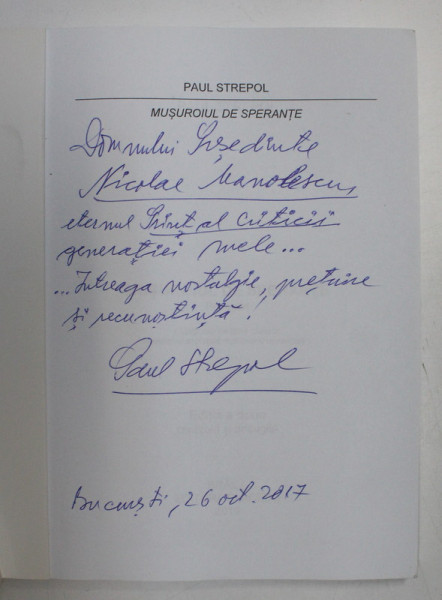 PAUL STREPOL
MUȘUROIUL DE SPERANȚE
Domnului Președinte
Nicolae Manolescu,
eternul Prinț al Criticii
generației mele...
...Întreaga nostalgie, prețuire
și recunoștință!
Paul Strepol
București, 26 oct. 2017